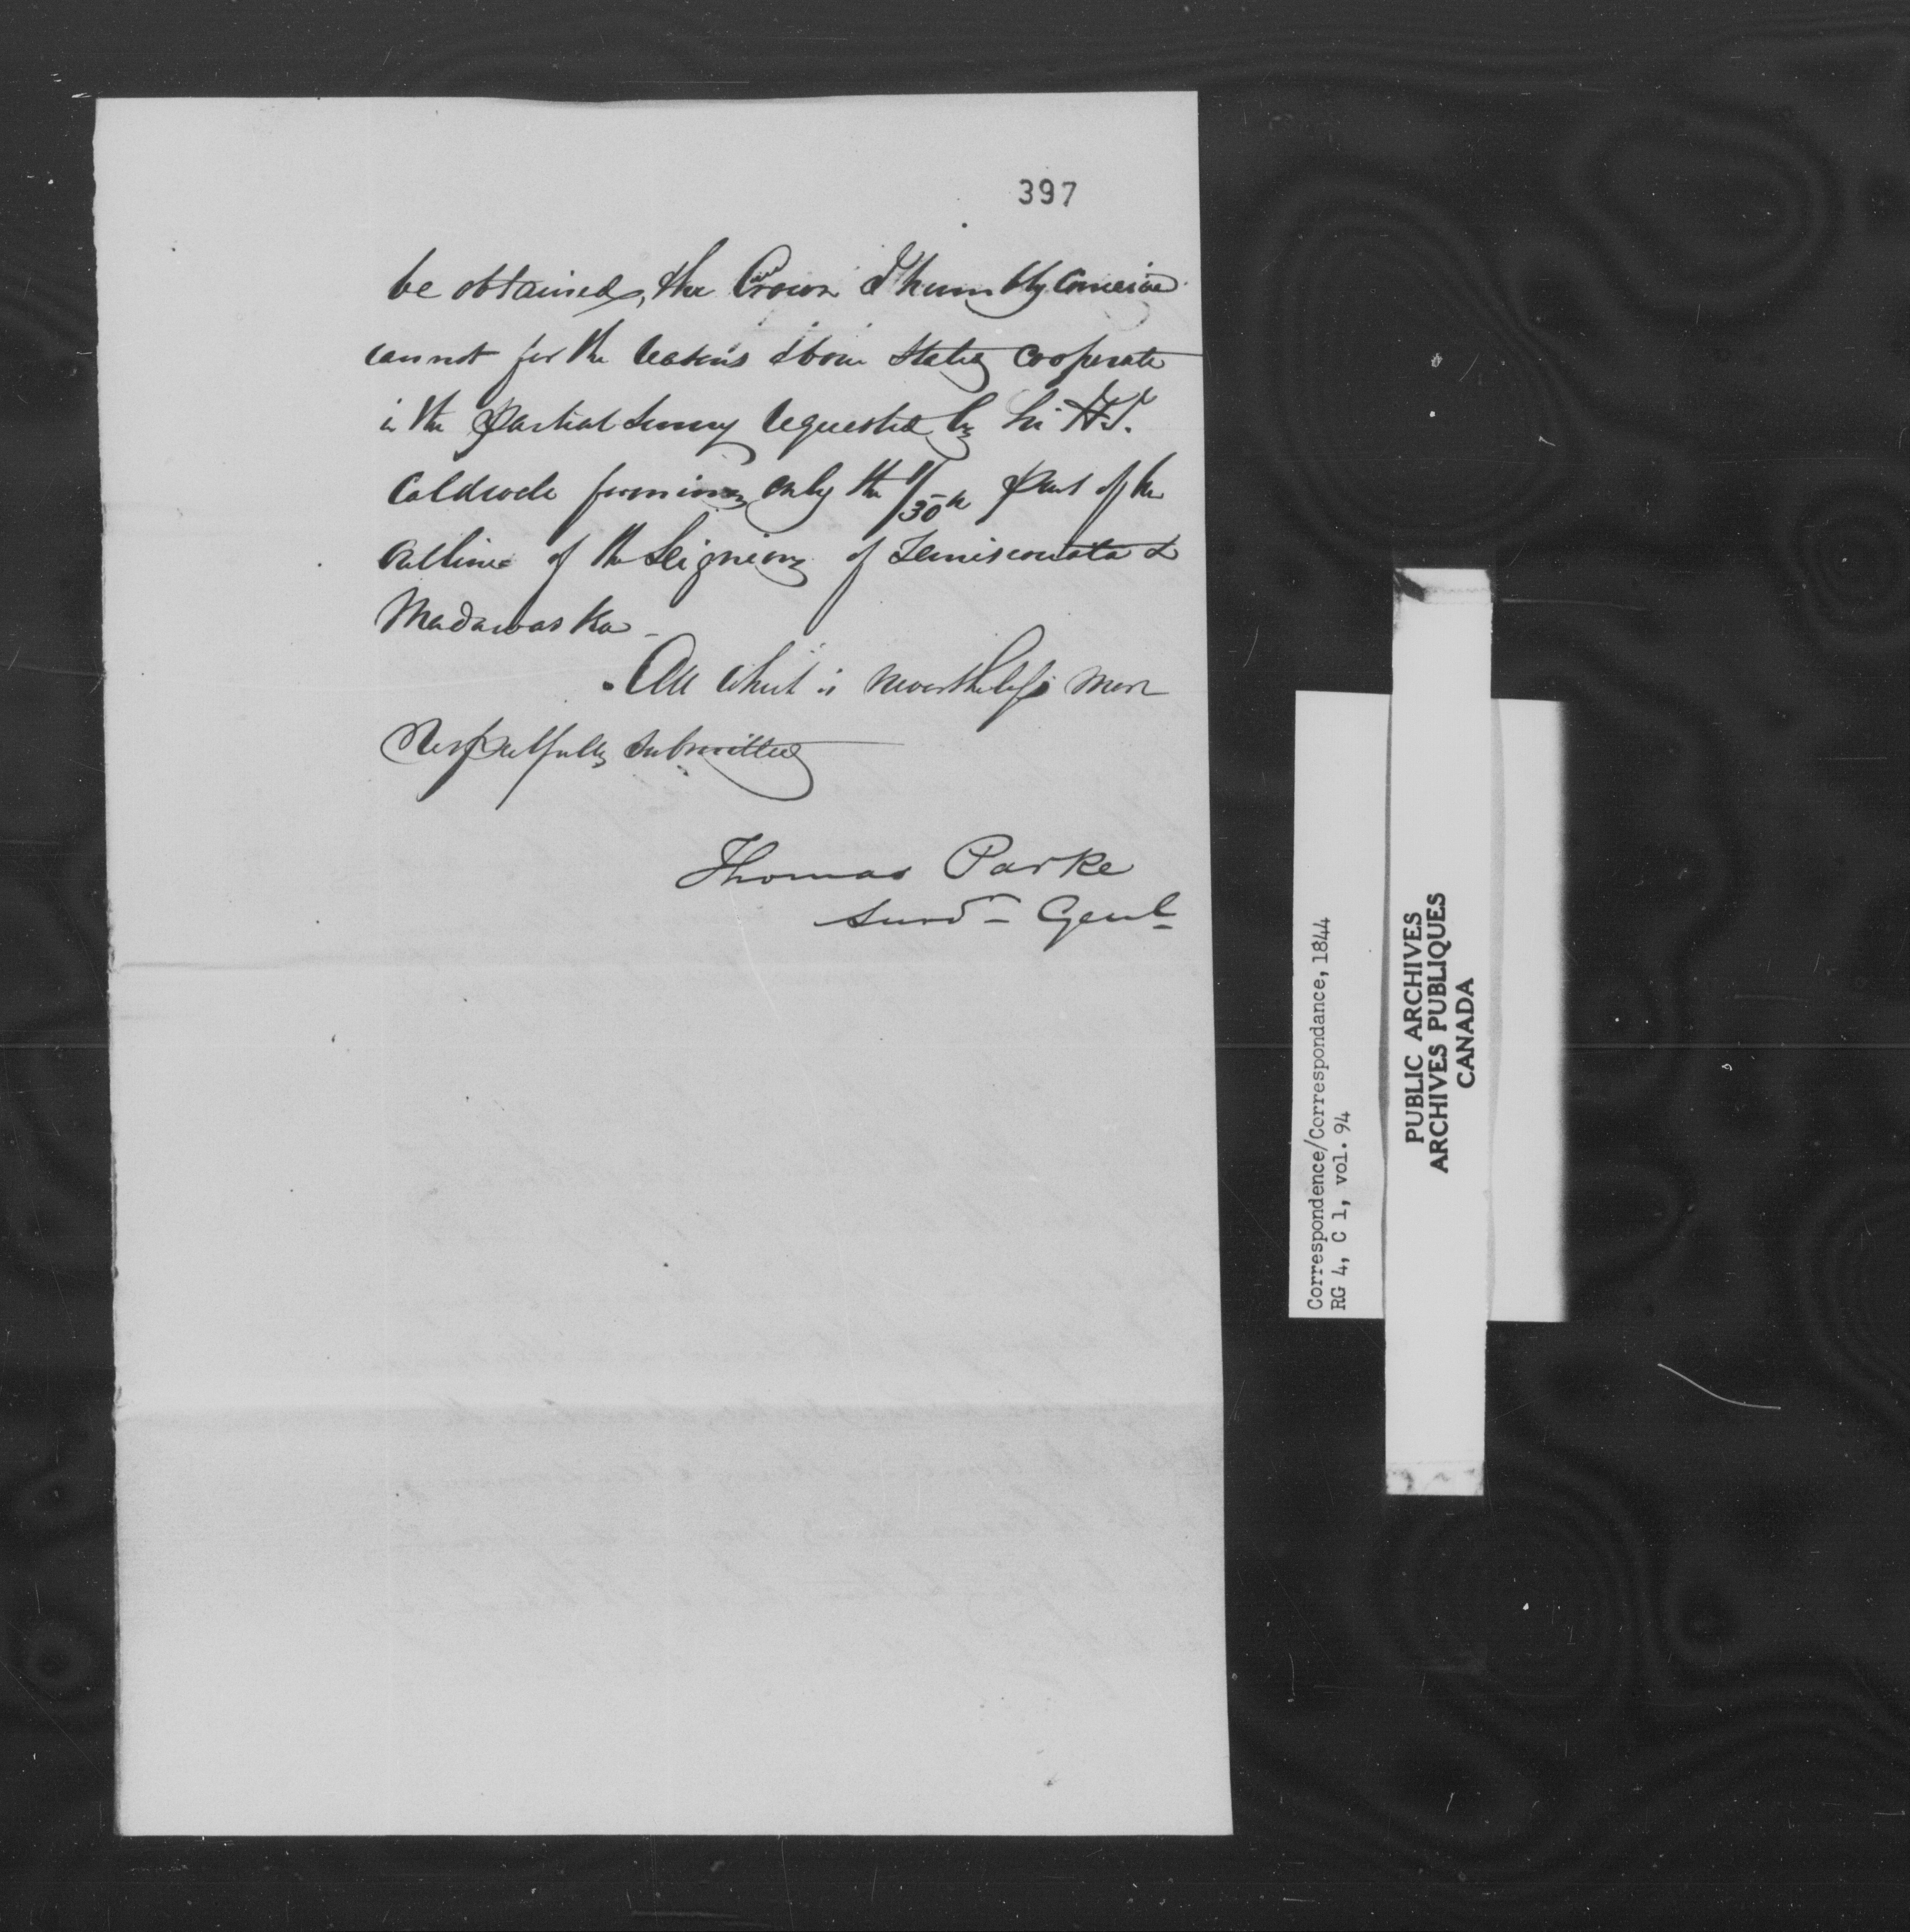 397
be obtained, the Crown I humbly conceive
cannot for the reasons above stated cooperate
in the partial survey requested by Sir H. J.
Caldwell forming only the 1/30th part of the
outline of the Seigniory of Temiscouata &
Madawaska -
All which is nevertheless most
Respectfully submitted
Thomas Parke
Survr Genl
Correspondence/Correspondance, 1844
RG 4, C 1, vol. 94
PUBLIC ARCHIVES
ARCHIVES PUBLIQUES
CANADA